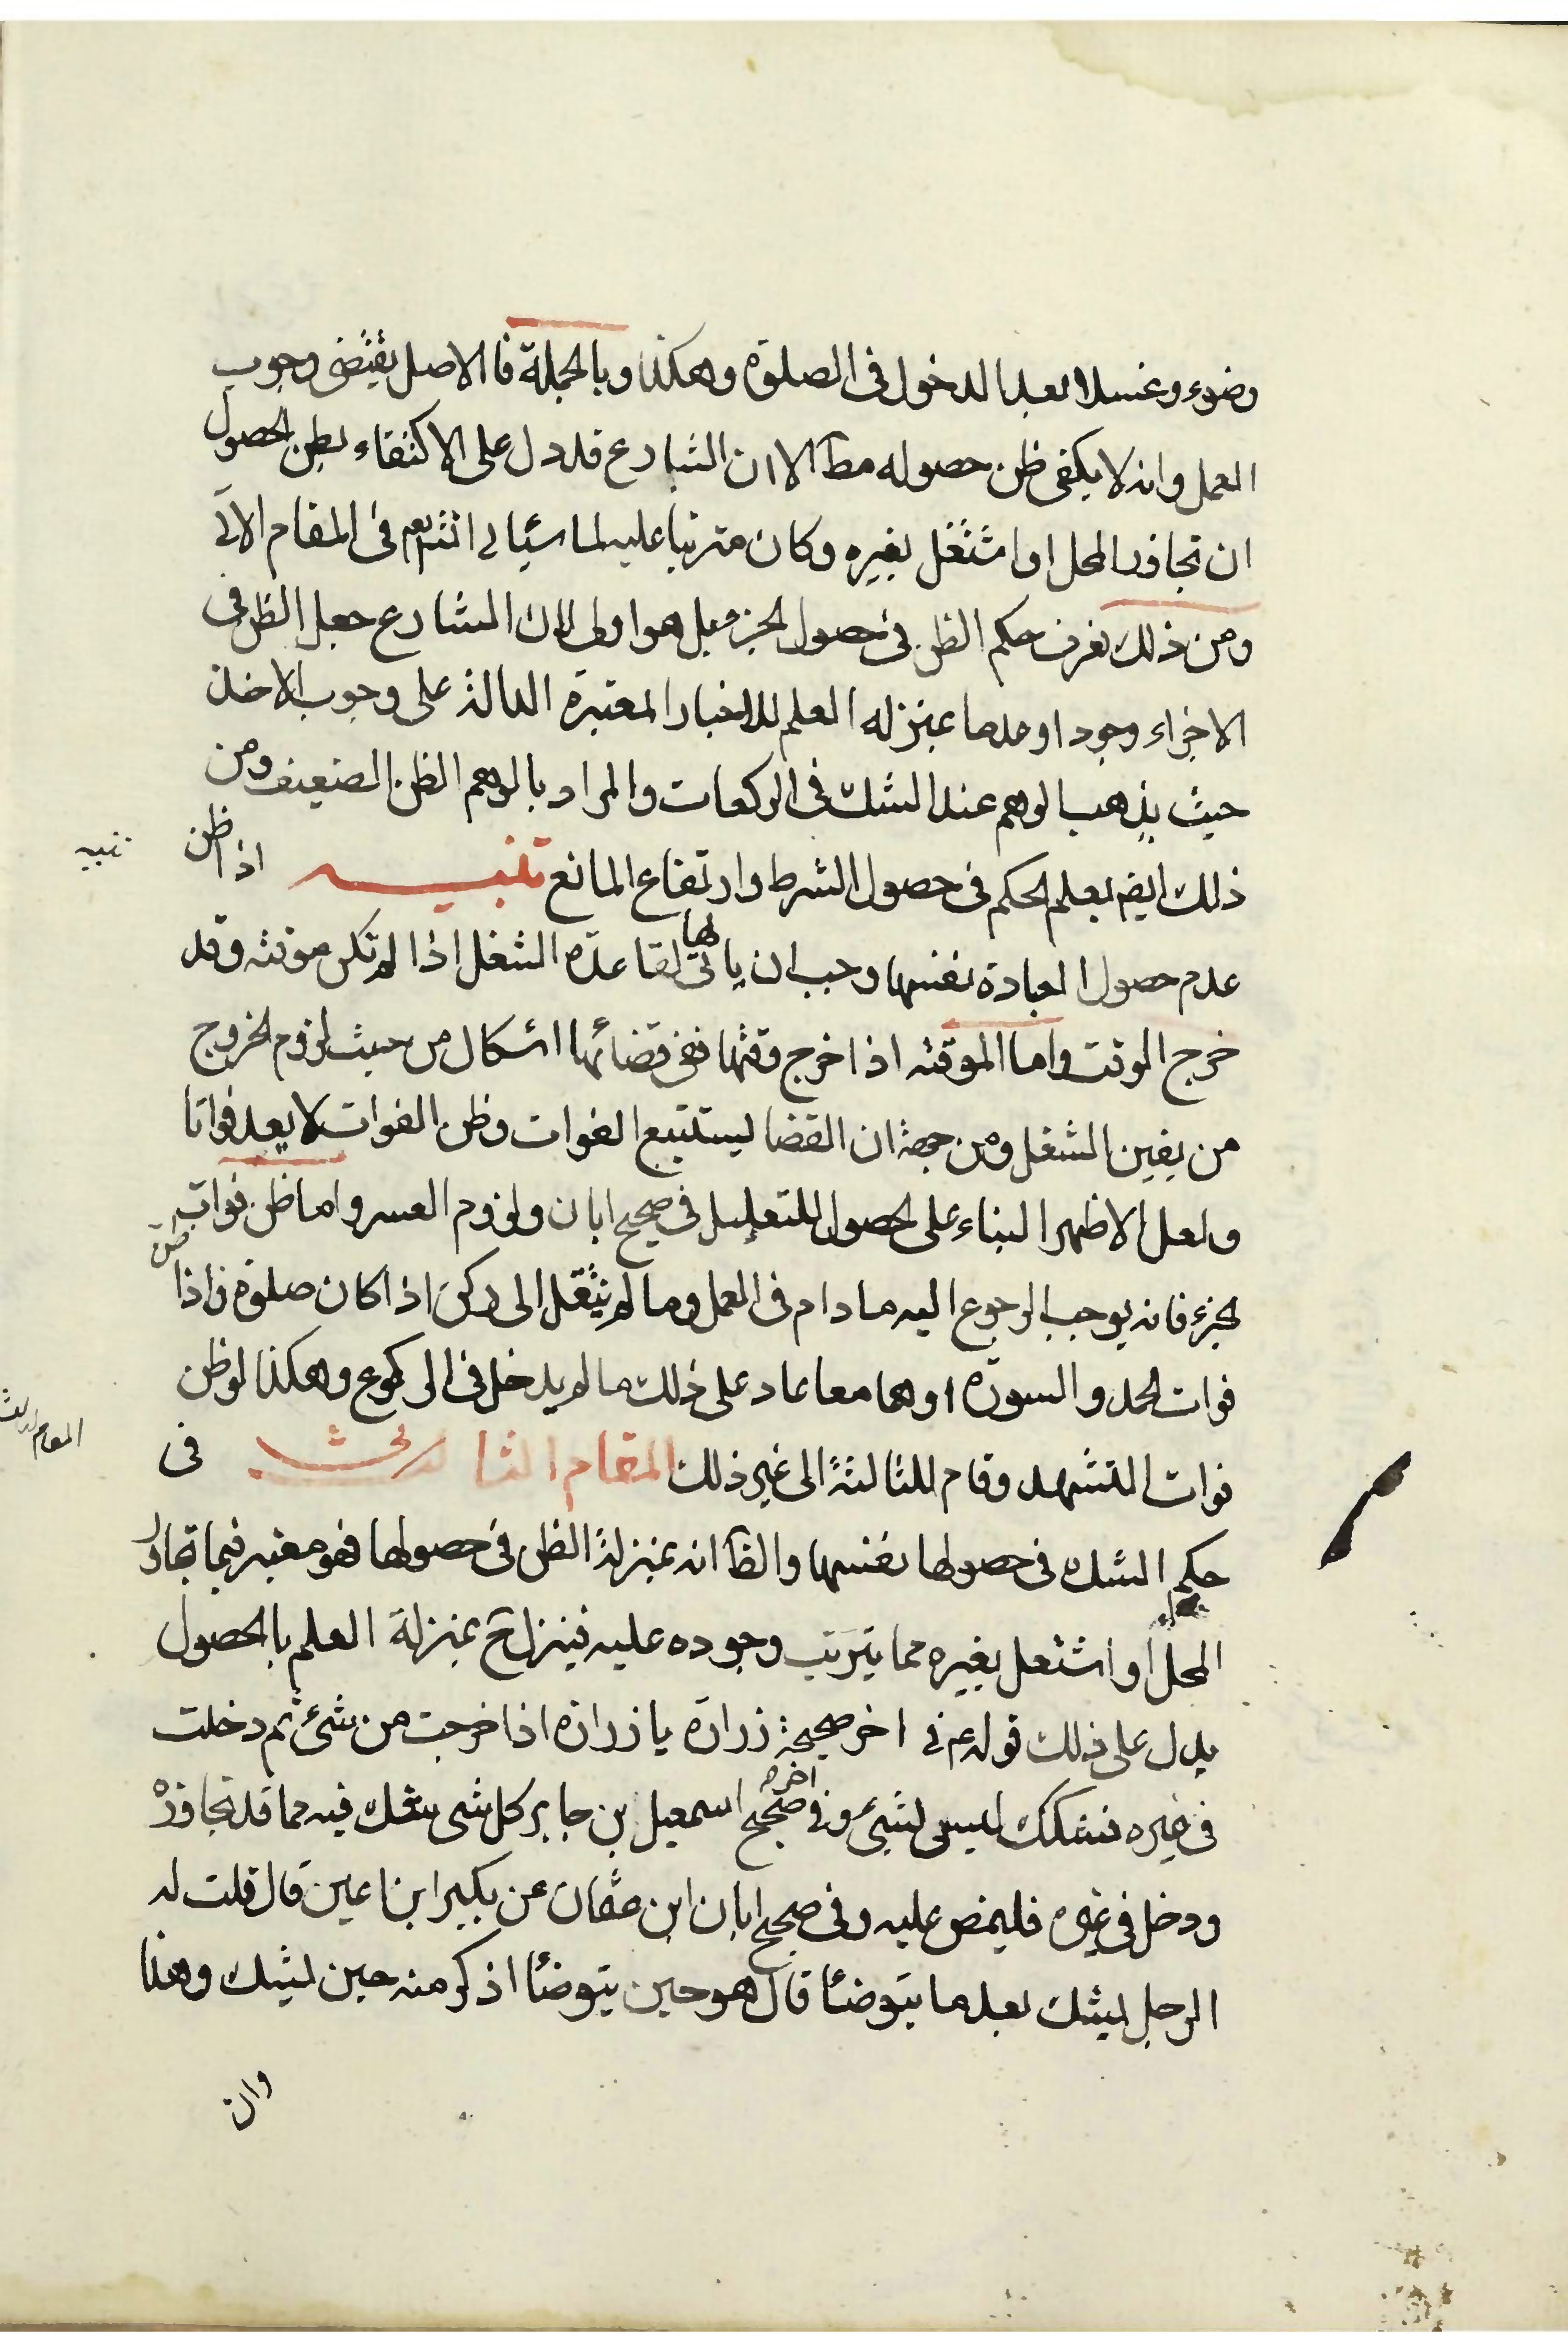 وضوء وغسلا بعد الدخول فى الصلوة وهكذا وبالجملة فا الاصل يقتضى وجوب
العمل وانه لا يكفى ظن حصوله مطآ الا ان الشارع قد دل على الاكتفاء بظن الحصول
ان تجاوز المحل او اشتغل بغيره وكان مترتبا عليه لما سيأتى انشم فى المقام الاتى
ومن ذلك تعرف حكم الظن فى حصول الجزء بل هو اولى لان الشارع جعل الظن فى
الاجزاء وجودا وعدما بمنزله العلم للاخبار المعتبرة الدالة على وجوب الاخذ
حيث يذهب الوهم عند الشك فى الركعات والمراد بالوهم الظن الضعيف ومن
ذلك ايضم يعلم الحكم فى حصول الشرط وارتفاع المانع تنبيه اذا ظن
تنبيه
عدم حصول العبادة نفسها وجب ان ياتى لها لقاعدة الشغل اذا لم تكن موقته وقد
خرج الوقت واما الموقته اذا خرج وقتها ففى قضائها اشكال من حيث لزوم الخروج
من يقين الشغل ومن جهة ان القضا يستتبع الفوات وظن الفوات لا يعد فواتا
ولعل الاظهر البناء على الحصول للتعليل فى صحيح ابان ولزوم العسر واما ظن فوات
الجزء فانه يوجب الرجوع اليه ما دام فى العمل وما لم ينتقل الى ركن اذا كان صلوة فاذا ظن
فوات الحمد والسورة او هما معا عاد على ذلك ما لم يدخل فى الركوع وهكذا لو ظن
فوات التشهد وقام للثالثة الى غير ذلك المقام الثالث فى
المقام الثالث
حكم الشك فى حصولها نفسها والظآ انه بمنزلة الظن فى حصولها فهو معتبر فيما تجاوز
المحل او اشتغل بغيره مما يترتب وجوده عليه فينزل ح بمنزلة العلم بالحصول
يدل على ذلك قوله ع فى اخر صحيحة زرارة يا زرارة اذا خرجت من شئ ثم دخلت
فى غيره فشكك ليس لشئ وفى اخره صحيح اسمعيل بن جابر كل شى شك فيه مما قد تجاوزه
ودخل فى غيره فليمض عليه وفى صحيح ابان ابن عثمان عن بكير ابن اعين قال قلت له
الرجل يشك بعد ما يتوضأ قال هو حين يتوضأ اذكر منه حين يشك وهذا
وان